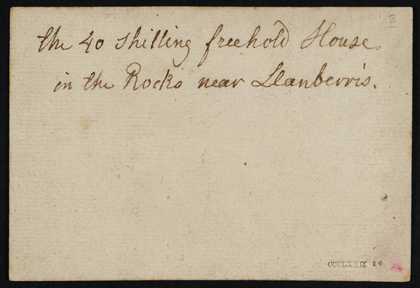 the 40 shilling freehold House
in the Rocks near Llanberris.